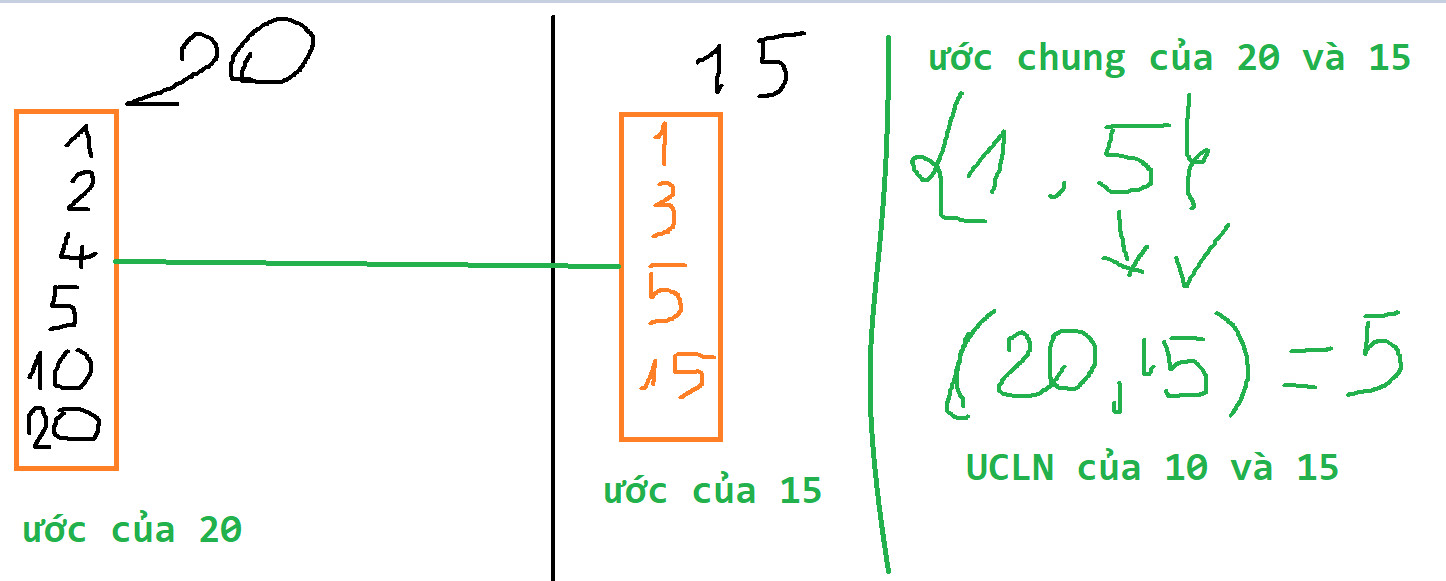 20
1
2
4
5
10
20
ước của 20
15
1
3
5
15
ước của 15
ước chung của 20 và 15
{1, 5}
(20, 15) = 5
UCLN của 10 và 15